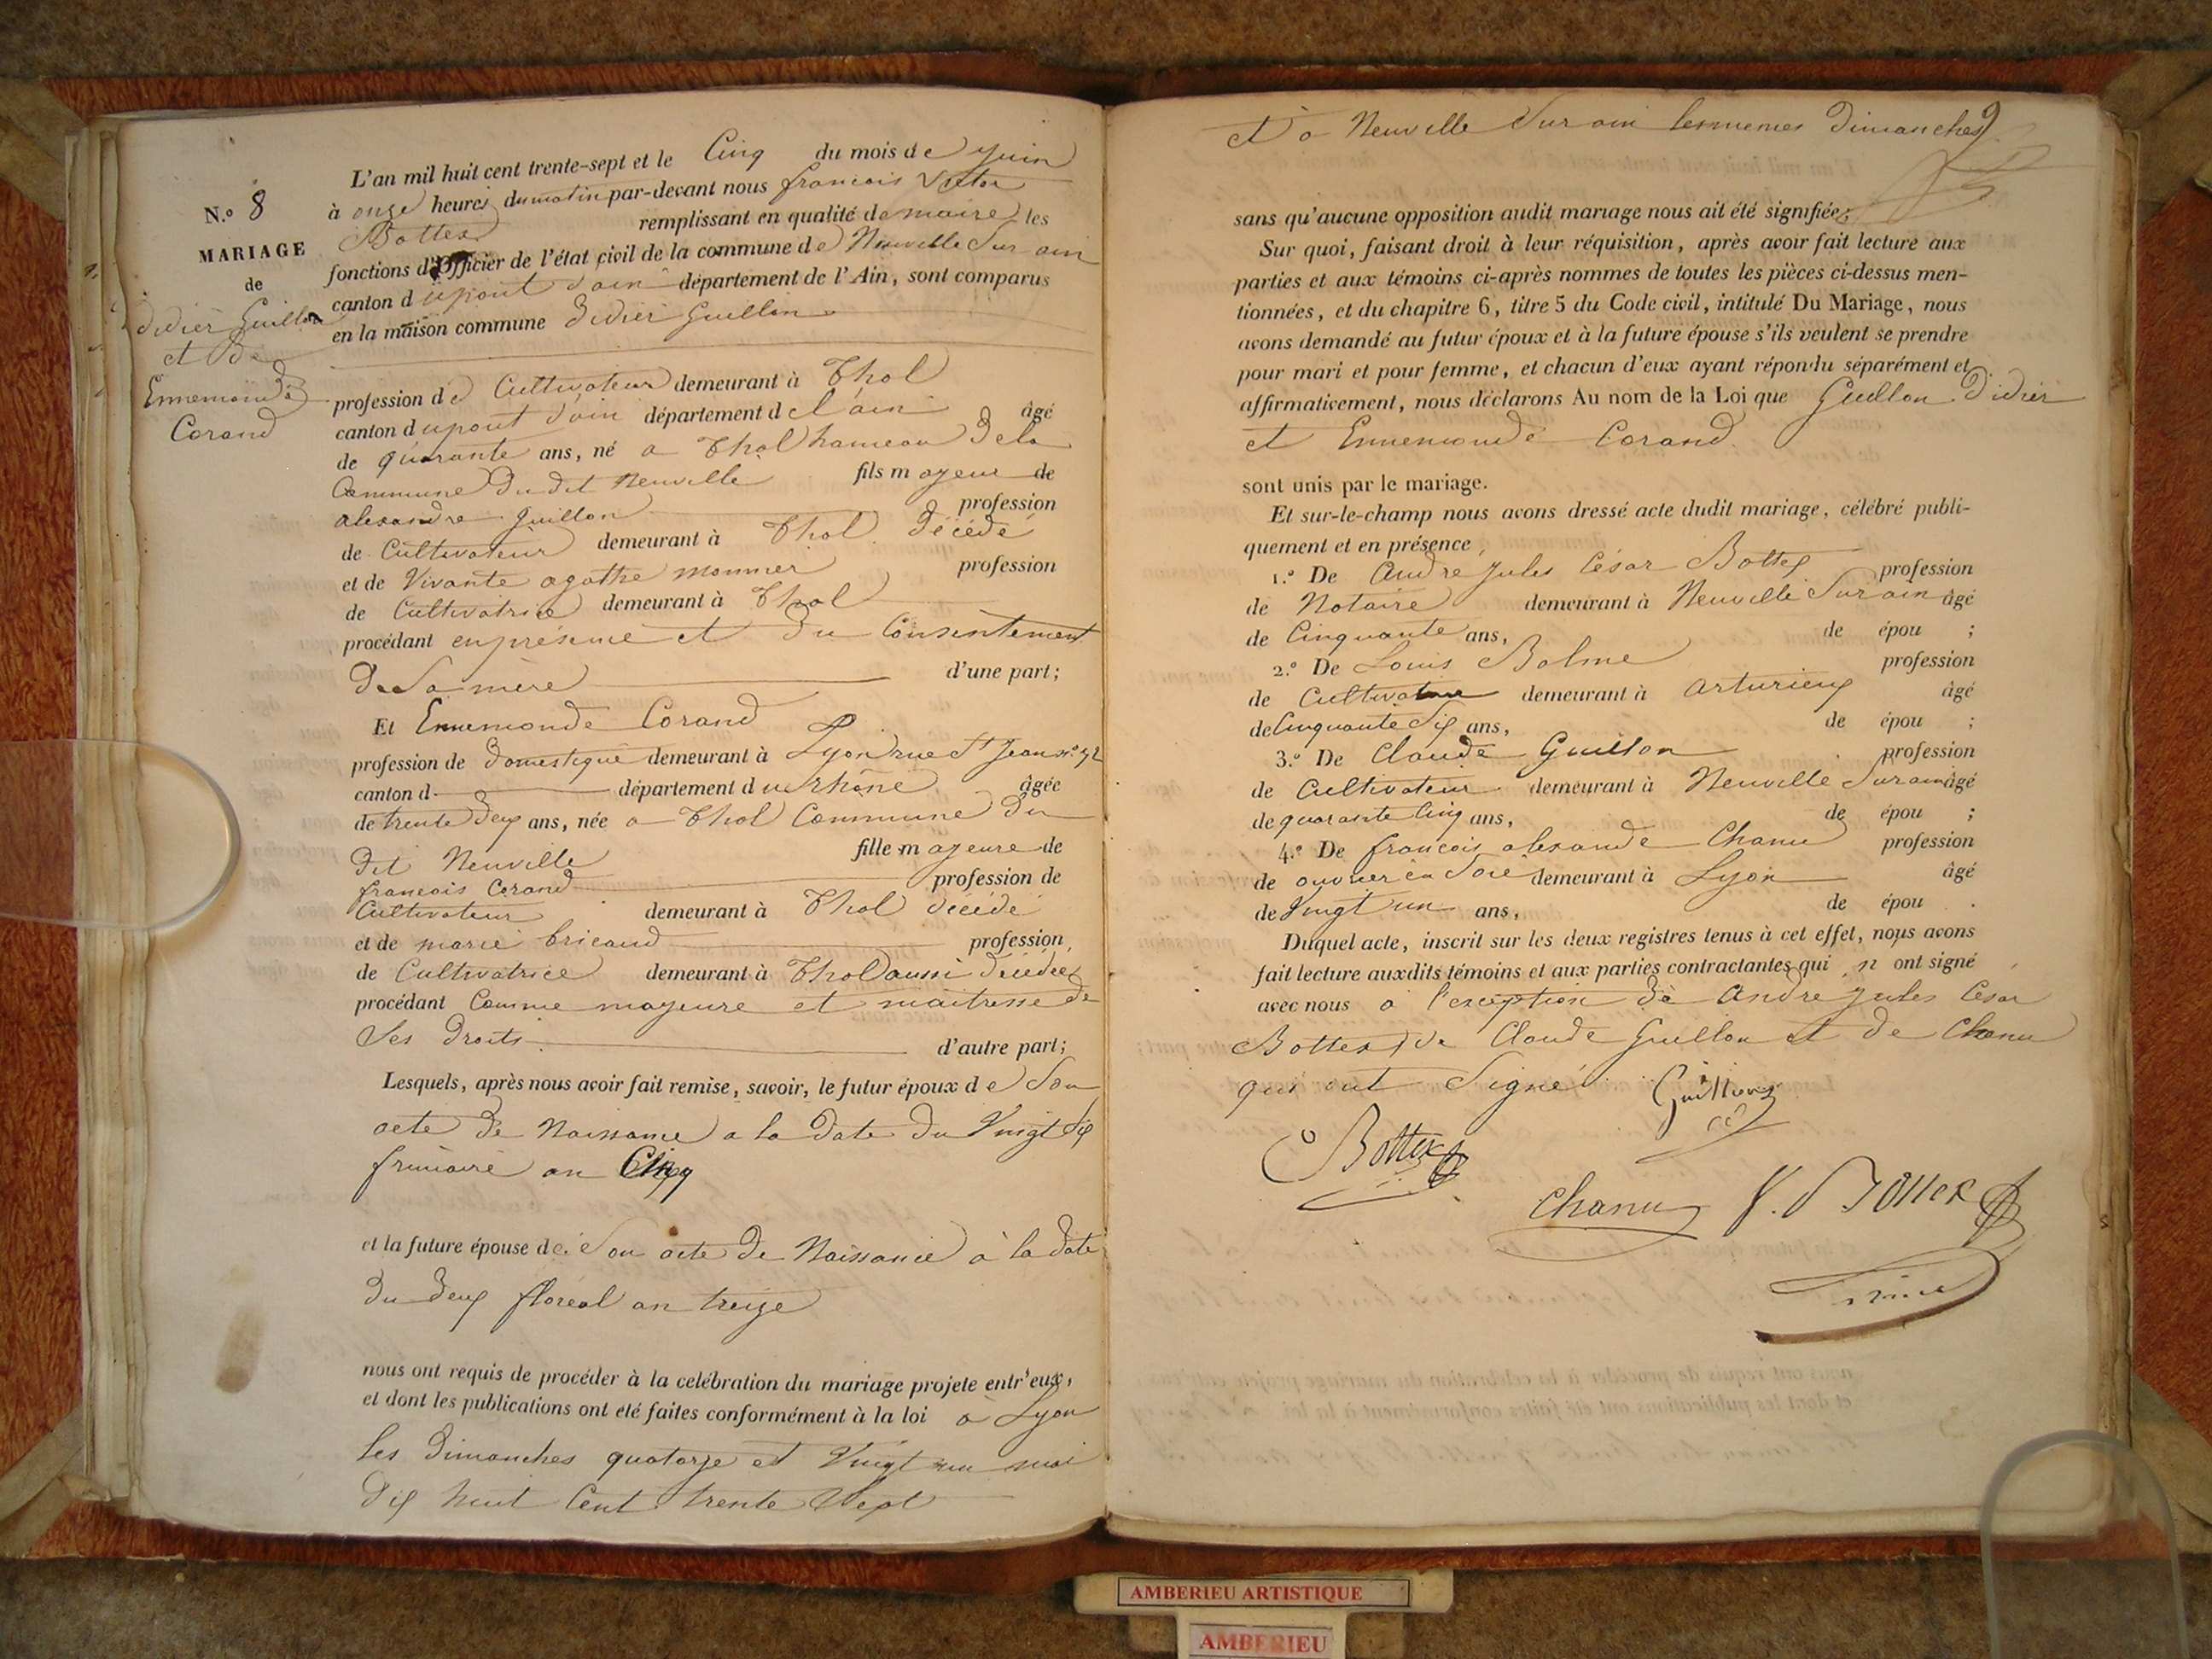 N.º 8
MARIAGE
de
Didier Guillon
et de
Ennemonde
Corand
L'an mil huit cent trente-sept et le Cinq du mois de juin
à onze heures du matin par-devant nous francois Victor
Bottex remplissant en qualité de maire les
fonctions d'Officier de l'état civil de la commune de Neuville Sur ain
canton du pont d'ain département de l'Ain, sont comparus
en la maison commune Didier Guillon
profession de Cultivateur demeurant à Thol
canton du pont d'ain département de l'ain âgé
de quarante ans, né a Thol hameau de la
Commune du dit Neuville fils majeur de
alexandre guillon profession
de Cultivateur demeurant à Thol décédé
et de Vivante agathe monnier profession
de Cultivatrice demeurant à Thol
procédant en présence et du Consentement
de Sa mère d'une part;
Et Ennemonde Corand
profession de domestique demeurant à Lyon rue St Jean nº 52
canton d département du rhône âgée
de trente deux ans, née a Thol Commune du
dit Neuville fille majeure de
francois Corand profession de
Cultivateur demeurant à Thol décédé
et de marie bricand profession
de Cultivatrice demeurant à Thol aussi décédée
procédant Comme majeure et maitresse de
Ses droits d'autre part;
Lesquels, après nous avoir fait remise, savoir, le futur époux de Son
acte de Naissance a la date du Vingt Six
frimaire an Cinq
et la future épouse de Son acte de Naissance à la date
du deux floréal an treize
nous ont requis de procéder à la celébration du mariage projete entr'eux,
et dont les publications ont été faites conformément à la loi à Lyon
les dimanches quatorze et Vingt un mai
dix huit Cent trente Sept
et à Neuville Sur ain les memes dimanches
sans qu'aucune opposition audit mariage nous ait été signifiée;
Sur quoi, faisant droit à leur réquisition, après avoir fait lecture aux
parties et aux témoins ci-après nommes de toutes les pièces ci-dessus men-
tionnées, et du chapitre 6, titre 5 du Code civil, intitulé Du Mariage, nous
avons demandé au futur époux et à la future épouse s'ils veulent se prendre
pour mari et pour femme, et chacun d'eux ayant répondu séparément et
affirmativement, nous déclarons Au nom de la Loi que Guillon Didier
et Ennemonde Corand
sont unis par le mariage.
Et sur-le-champ nous avons dressé acte dudit mariage, célébré publi-
quement et en présence,
1.º De André jules César Bottex profession
de Notaire demeurant à Neuville Sur ain âgé
de Cinquante ans, de épou ;
2.º De Louis Balme profession
de Cultivateur demeurant à arturieux âgé
de Cinquante Six ans, de épou ;
3.º De Claude Guillon profession
de Cultivateur demeurant à Neuville Sur ain âgé
de quarante Cinq ans, de épou ;
4.º De francois alexandre Chanu profession
de ouvrier en Soie demeurant à Lyon âgé
de Vingt un ans, de épou .
Duquel acte, inscrit sur les deux registres tenus à cet effet, nous avons
fait lecture auxdits témoins et aux parties contractantes qui n ont signé
avec nous à l'exception de André jules César
Bottex, de Claude Guillon et de Chanu
qui ont Signé
Guillon
Bottex
Chanu V. Bottex
maire
AMBERIEU ARTISTIQUE
AMBERIEU